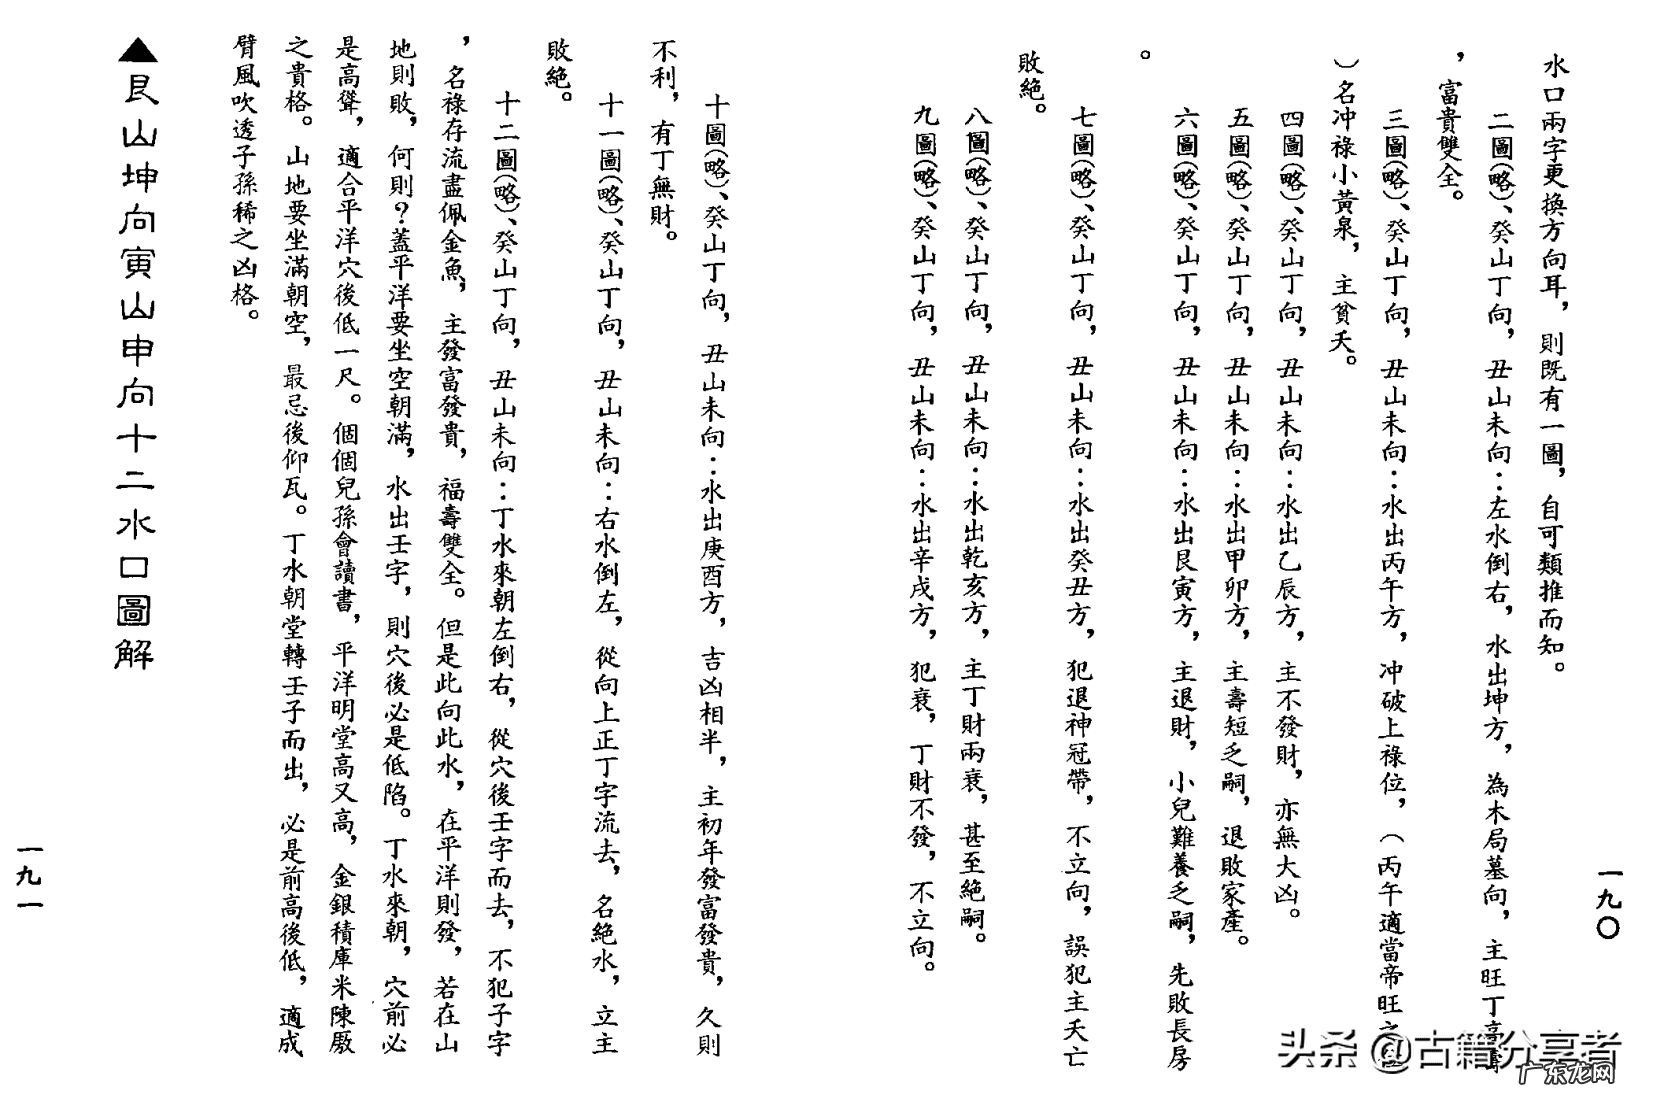 水口兩字更換方向耳，則既有一圖，自可類推而知。
二圖（略）、癸山丁向，丑山未向：左水倒右，水出坤方，為木局墓向，主旺丁高
，富貴雙全。
三圖（略）、癸山丁向，丑山未向：水出丙午方，冲破上祿位，（丙午適當帝旺之
）名冲祿小黃泉，主貧夭。
四圖（略）、癸山丁向，丑山未向：水出乙辰方，主不發財，亦無大凶。
五圖（略）、癸山丁向，丑山未向：水出甲卯方，主壽短乏嗣，退敗家產。
六圖（略）、癸山丁向，丑山未向：水出艮寅方，主退財，小兒難養乏嗣，先敗長房
。
七圖（略）、癸山丁向，丑山未向：水出癸丑方，犯退神冠帶，不立向，誤犯主夭亡
敗絕。
八圖（略）、癸山丁向，丑山未向：水出乾亥方，主丁財兩衰，甚至絕嗣。
九圖（略）、癸山丁向，丑山未向：水出辛戌方，犯衰，丁財不發，不立向。
一九〇
十圖（略）、癸山丁向，丑山未向：水出庚酉方，吉凶相半，主初年發富發貴，久則
不利，有丁無財。
十一圖（略）、癸山丁向，丑山未向：右水倒左，從向上正丁字流去，名絕水，立主
敗絕。
十二圖（略）、癸山丁向，丑山未向：丁水來朝左倒右，從穴後壬字而去，不犯子字
，名祿存流盡佩金魚，主發富發貴，福壽雙全。但是此向此水，在平洋則發，若在山
地則敗，何則？蓋平洋要坐空朝滿，水出壬字，則穴後必是低陷。丁水來朝，穴前必
是高聳，適合平洋穴後低一尺。個個兒孫會讀書，平洋明堂高又高，金銀積庫米陳廒
之貴格。山地要坐滿朝空，最忌後仰瓦。丁水朝堂轉壬子而出，必是前高後低，適成
臂風吹透子孫稀之凶格。
▲艮山坤向寅山申向十二水口圖解
一九一
头条 @古籍分享者
广东龙网